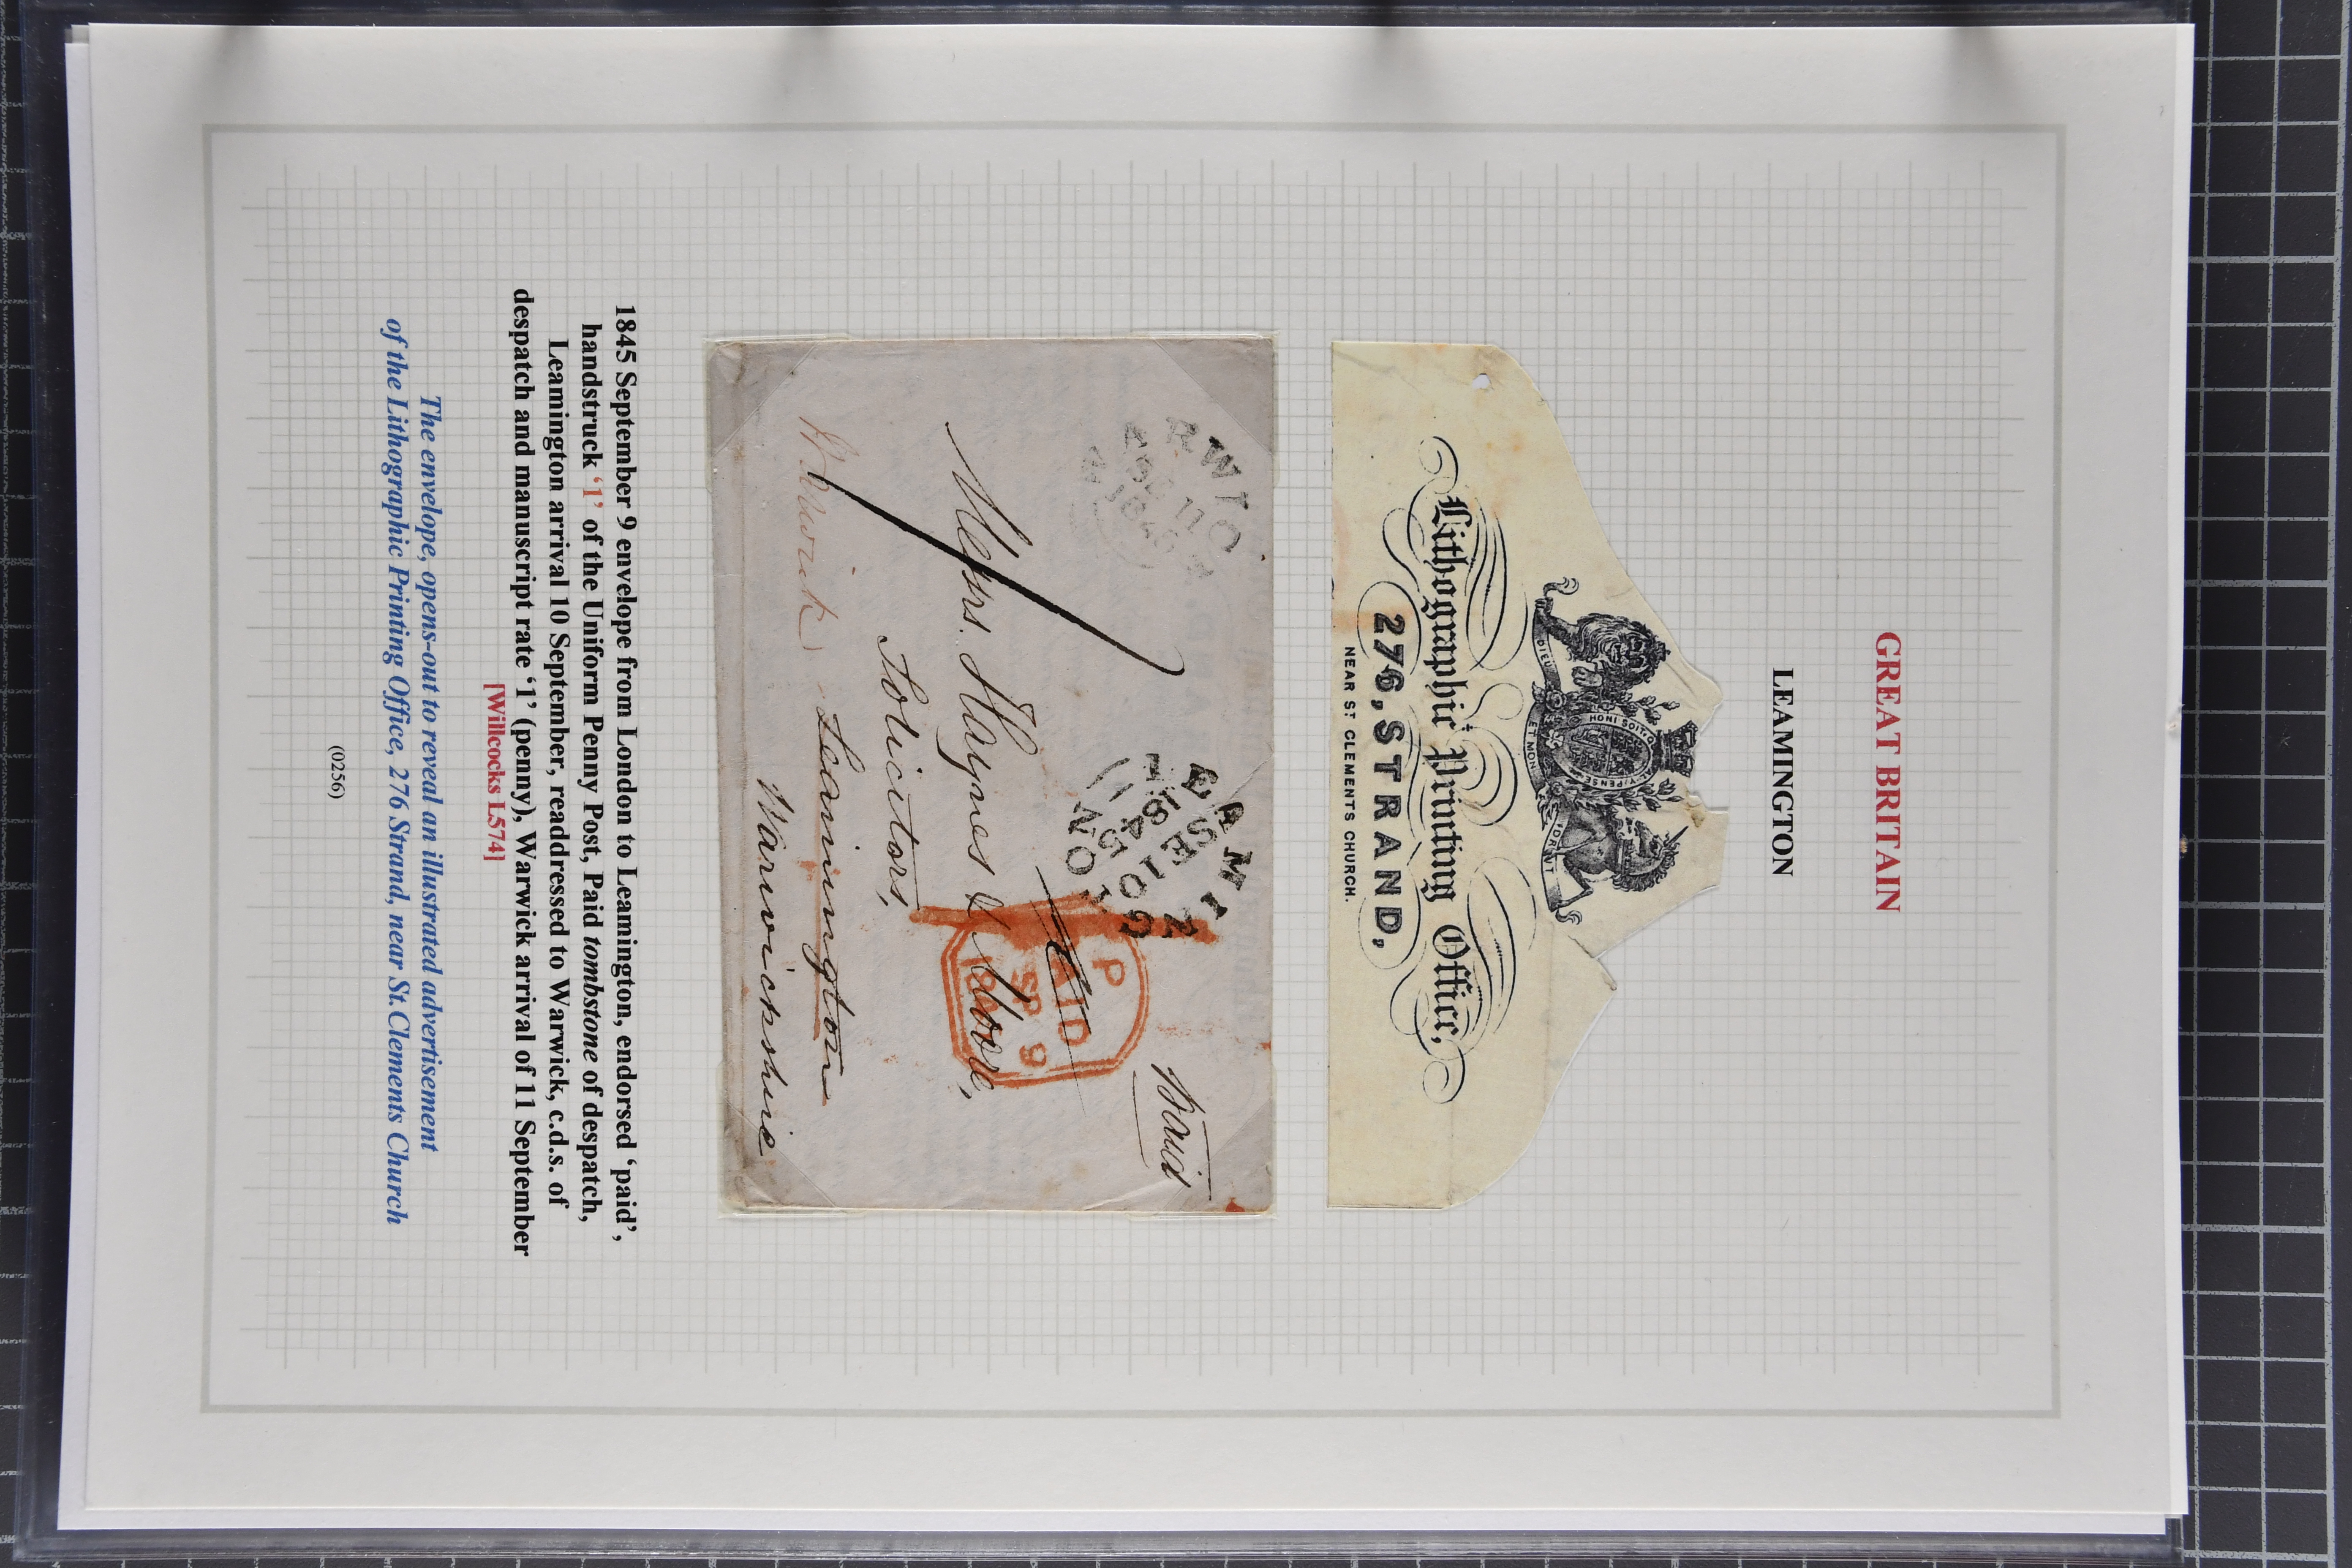 GREAT BRITAIN
LEAMINGTON
HONI SOIT Q MAL Y PENSE
DIEU ET MON DROIT
Lithographic Printing Office,
276, STRAND,
NEAR ST CLEMENTS CHURCH.
SE 11
1845
LEAMINGTON
SE 10
1845
Paid
PAID
SP 9
Messrs. Haynes & Moore,
Solicitors,
Warwick Leamington
Warwickshire
1845 September 9 envelope from London to Leamington, endorsed ‘paid’,
handstruck ‘1’ of the Uniform Penny Post, Paid tombstone of despatch,
Leamington arrival 10 September, readdressed to Warwick, c.d.s. of
despatch and manuscript rate ‘1’ (penny), Warwick arrival of 11 September
[Willcocks L574]
The envelope, opens-out to reveal an illustrated advertisement
of the Lithographic Printing Office, 276 Strand, near St. Clements Church
(0256)